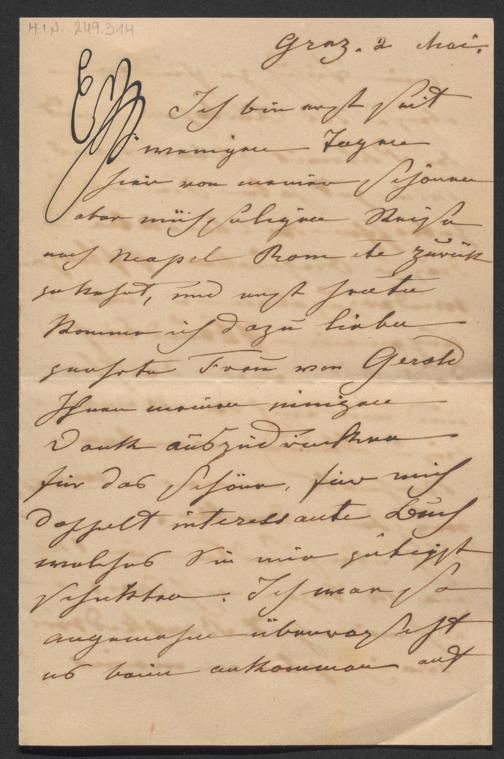 H.I.N. 249.314
Graz. 2 Mai.
Ich bin erst seit
wenigen Tagen
hier von meiner schönen
aber mühseligen Reise
nach Neapel Rom etc zurük
gekehrt, und erst heute
komme ich dazu liebe
geehrte Frau von Gerold
Ihnen meinen innigen
Dank auszudrücken
für das schöne, für mich
doppelt interessante Buch
welches Sie mir gütigst
schikten. Ich war so
angenehm überrascht
es beim ankommen auf